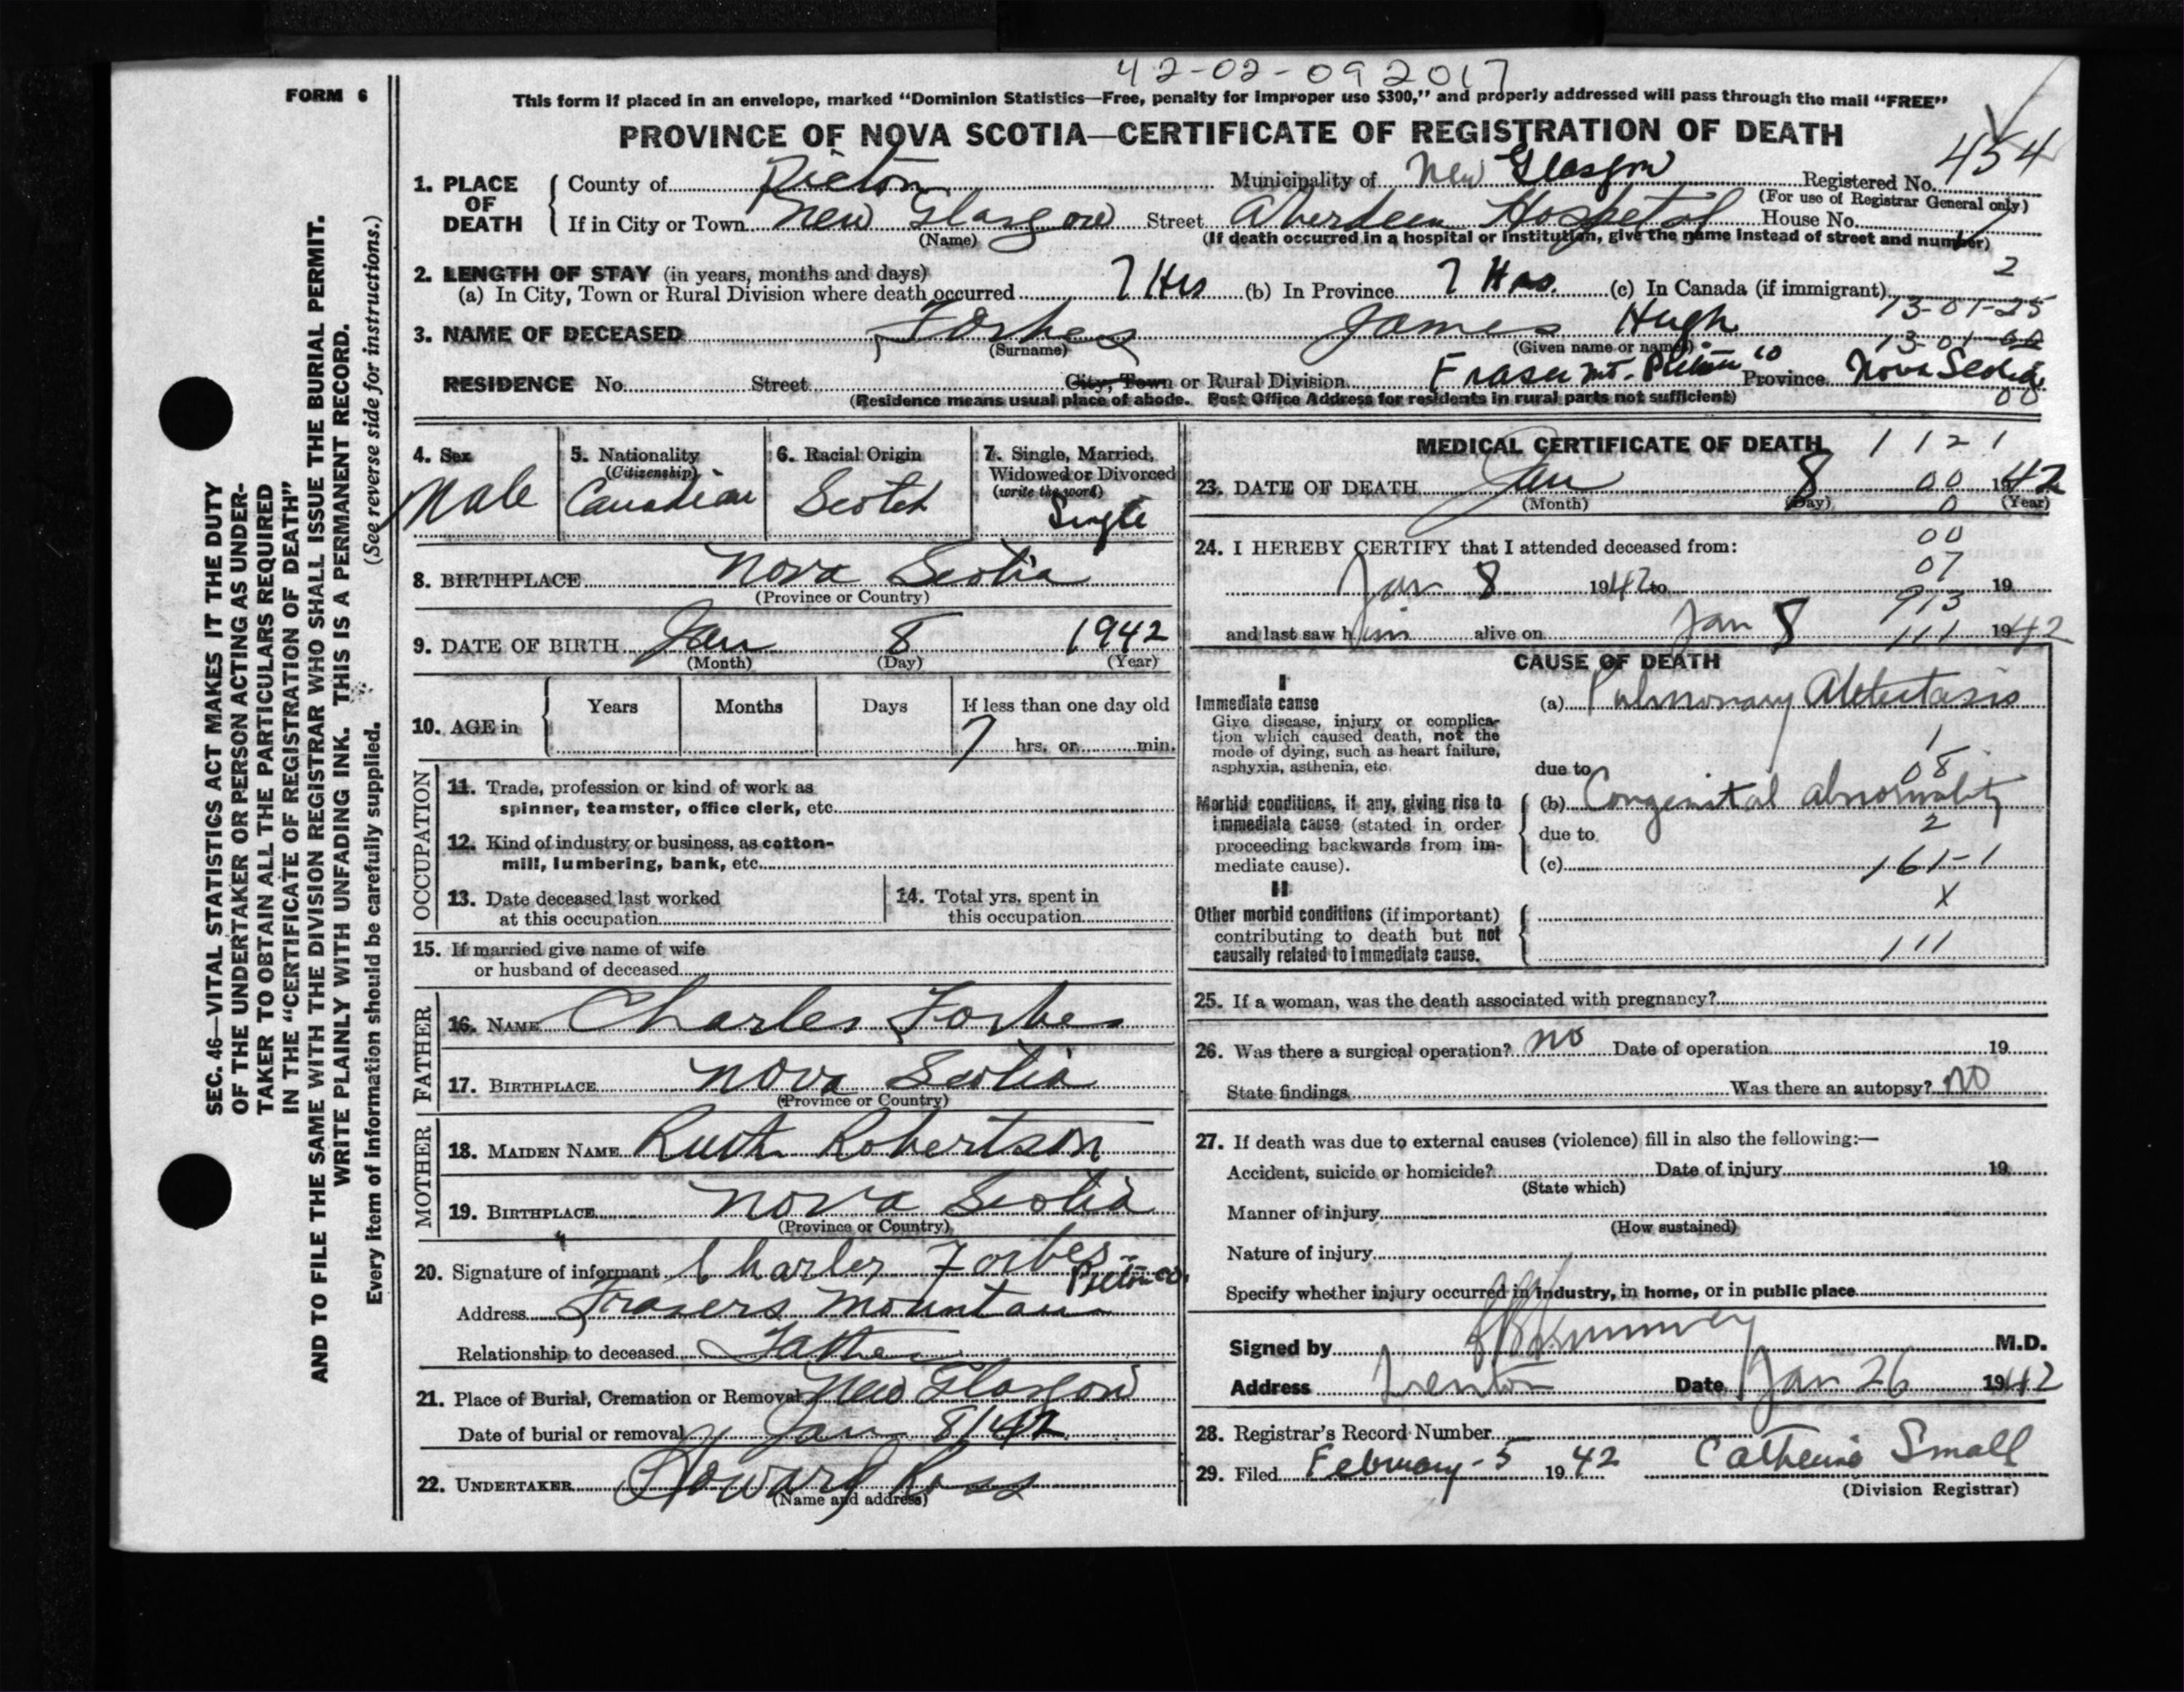 42-02-092017
FORM 6
This form if placed in an envelope, marked "Dominion Statistics—Free, penalty for improper use $300," and properly addressed will pass through the mail "FREE"
PROVINCE OF NOVA SCOTIA—CERTIFICATE OF REGISTRATION OF DEATH
454
1. PLACE OF DEATH { County of Pictou Municipality of New Glasgow Registered No.
(For use of Registrar General only)
If in City or Town New Glasgow Street Aberdeen Hospital House No.
(Name) (If death occurred in a hospital or institution, give the name instead of street and number)
2. LENGTH OF STAY (in years, months and days) 2
(a) In City, Town or Rural Division where death occurred 7 Hrs (b) In Province 7 Hrs. (c) In Canada (if immigrant)
13-01-25
3. NAME OF DECEASED Forbes James Hugh
(Surname) (Given name or names)
RESIDENCE No. Street City, Town or Rural Division Fraser Mt. Pictou Co Province Nova Scotia
(Residence means usual place of abode. Post Office Address for residents in rural parts not sufficient) 00
4. Sex 5. Nationality (Citizenship) 6. Racial Origin 7. Single, Married, Widowed or Divorced (write the word)
Male Canadian Scotch Single
8. BIRTHPLACE Nova Scotia
(Province or Country)
9. DATE OF BIRTH Jan 8 1942
(Month) (Day) (Year)
10. AGE in { Years Months Days If less than one day old
7 hrs. or min.
OCCUPATION
11. Trade, profession or kind of work as
spinner, teamster, office clerk, etc.
12. Kind of industry or business, as cotton-
mill, lumbering, bank, etc.
13. Date deceased last worked
at this occupation
14. Total yrs. spent in
this occupation
15. If married give name of wife
or husband of deceased
FATHER
16. NAME Charles Forbes
17. BIRTHPLACE Nova Scotia
(Province or Country)
MOTHER
18. MAIDEN NAME Ruth Robertson
19. BIRTHPLACE Nova Scotia
(Province or Country)
20. Signature of informant Charles Forbes
Address Frasers Mountain Pictou Co.
Relationship to deceased Father
21. Place of Burial, Cremation or Removal New Glasgow
Date of burial or removal Jan 8/42
22. UNDERTAKER Howard Ross
(Name and address)
MEDICAL CERTIFICATE OF DEATH 1121
23. DATE OF DEATH Jan 8 00 1942
(Month) (Day) 0 (Year)
24. I HEREBY CERTIFY that I attended deceased from: 00
07
Jan 8 1942 to 19
913
and last saw him alive on Jan 8 111 1942
CAUSE OF DEATH
I
Immediate cause
Give disease, injury or complica-
tion which caused death, not the
mode of dying, such as heart failure,
asphyxia, asthenia, etc.
(a) Pulmonary Atelectasis
1
due to 08
Morbid conditions, if any, giving rise to
immediate cause (stated in order
proceeding backwards from im-
mediate cause).
(b) Congenital abnormality
due to 2
(c) 161-1
II
X
Other morbid conditions (if important)
contributing to death but not
causally related to immediate cause.
111
25. If a woman, was the death associated with pregnancy?
26. Was there a surgical operation? no Date of operation 19
State findings Was there an autopsy? no
27. If death was due to external causes (violence) fill in also the following:—
Accident, suicide or homicide? Date of injury 19
(State which)
Manner of injury
(How sustained)
Nature of injury
Specify whether injury occurred in industry, in home, or in public place
Signed by M.D.
Address Trenton Date Jan 26 1942
28. Registrar's Record Number
29. Filed February-5 1942 Catherine Small
(Division Registrar)
SEC. 46—VITAL STATISTICS ACT MAKES IT THE DUTY
OF THE UNDERTAKER OR PERSON ACTING AS UNDER-
TAKER TO OBTAIN ALL THE PARTICULARS REQUIRED
IN THE "CERTIFICATE OF REGISTRATION OF DEATH"
AND TO FILE THE SAME WITH THE DIVISION REGISTRAR WHO SHALL ISSUE THE BURIAL PERMIT.
WRITE PLAINLY WITH UNFADING INK. THIS IS A PERMANENT RECORD.
Every item of information should be carefully supplied. (See reverse side for instructions.)